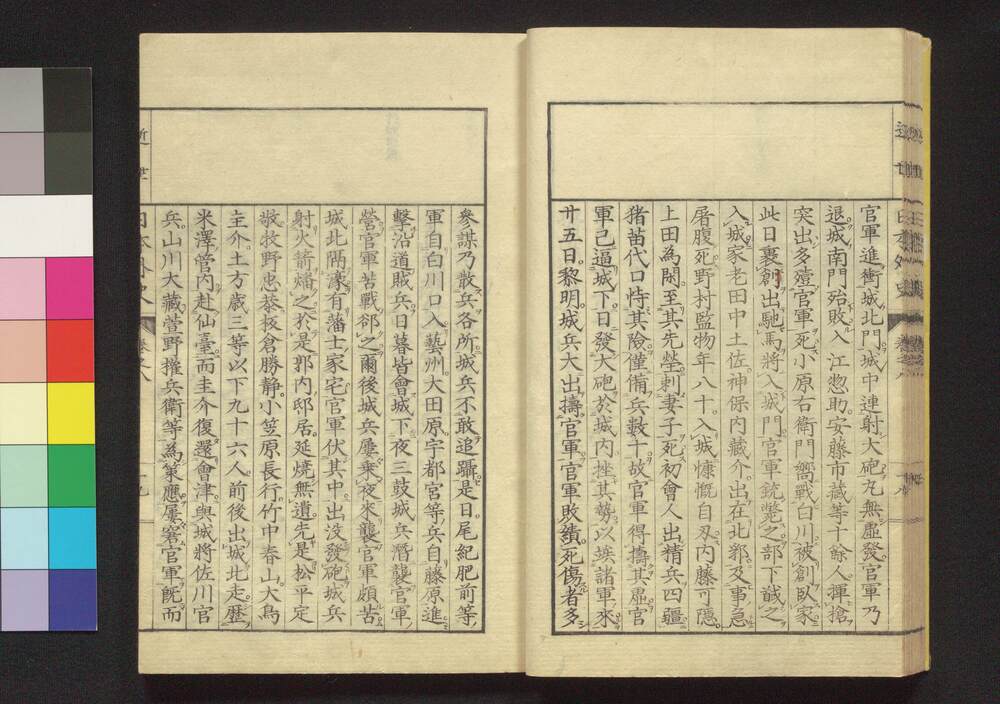 官軍進衝城北門城中連射大砲丸無虛發官軍乃
退城南門殆敗入江惣助安藤市藏等十餘人揮槍
突出多殪官軍死小原右衛門嚮戰白川被創臥家
此日裹創出馳馬將入城門官軍銃斃之部下馘之
入城家老田中土佐神保內藏介出在北郭及事急
屠腹死野村監物年八十入城慷慨自刃內藤可隱
上田為閑至其先坐刺妻子死初會人出精兵四疆
猪苗代口恃其險僅備兵數十故官軍得擣其虛官
軍已逼城下日發大砲於城內挫其勢以埃諸軍來
廿五日黎明城兵大出擣官軍官軍敗績死傷者多
參謀乃散兵各所城兵不敢追躡是日尾紀肥前等
軍自白川口入藝州大田原宇都宮等兵自藤原進
擊沿道賊兵日暮皆會城下夜三鼓城兵潛襲官軍
營官軍苦戰郤之爾後城兵塵乘夜來襲官軍頗苦
城北隅濠有藩士家宅官軍伏其中出沒發砲城兵
射火箭燔之於是郭內邸居延燒無遺先是松平定
敬牧野忠恭板倉勝靜小笠原長行竹中春山大鳥
圭介土方歲三等以下九十六人前後出城北走歷
米澤管內赴仙臺而圭介復還會津與城將佐川官
兵山川大藏萱野權兵衛等為策應屢窘官軍既而